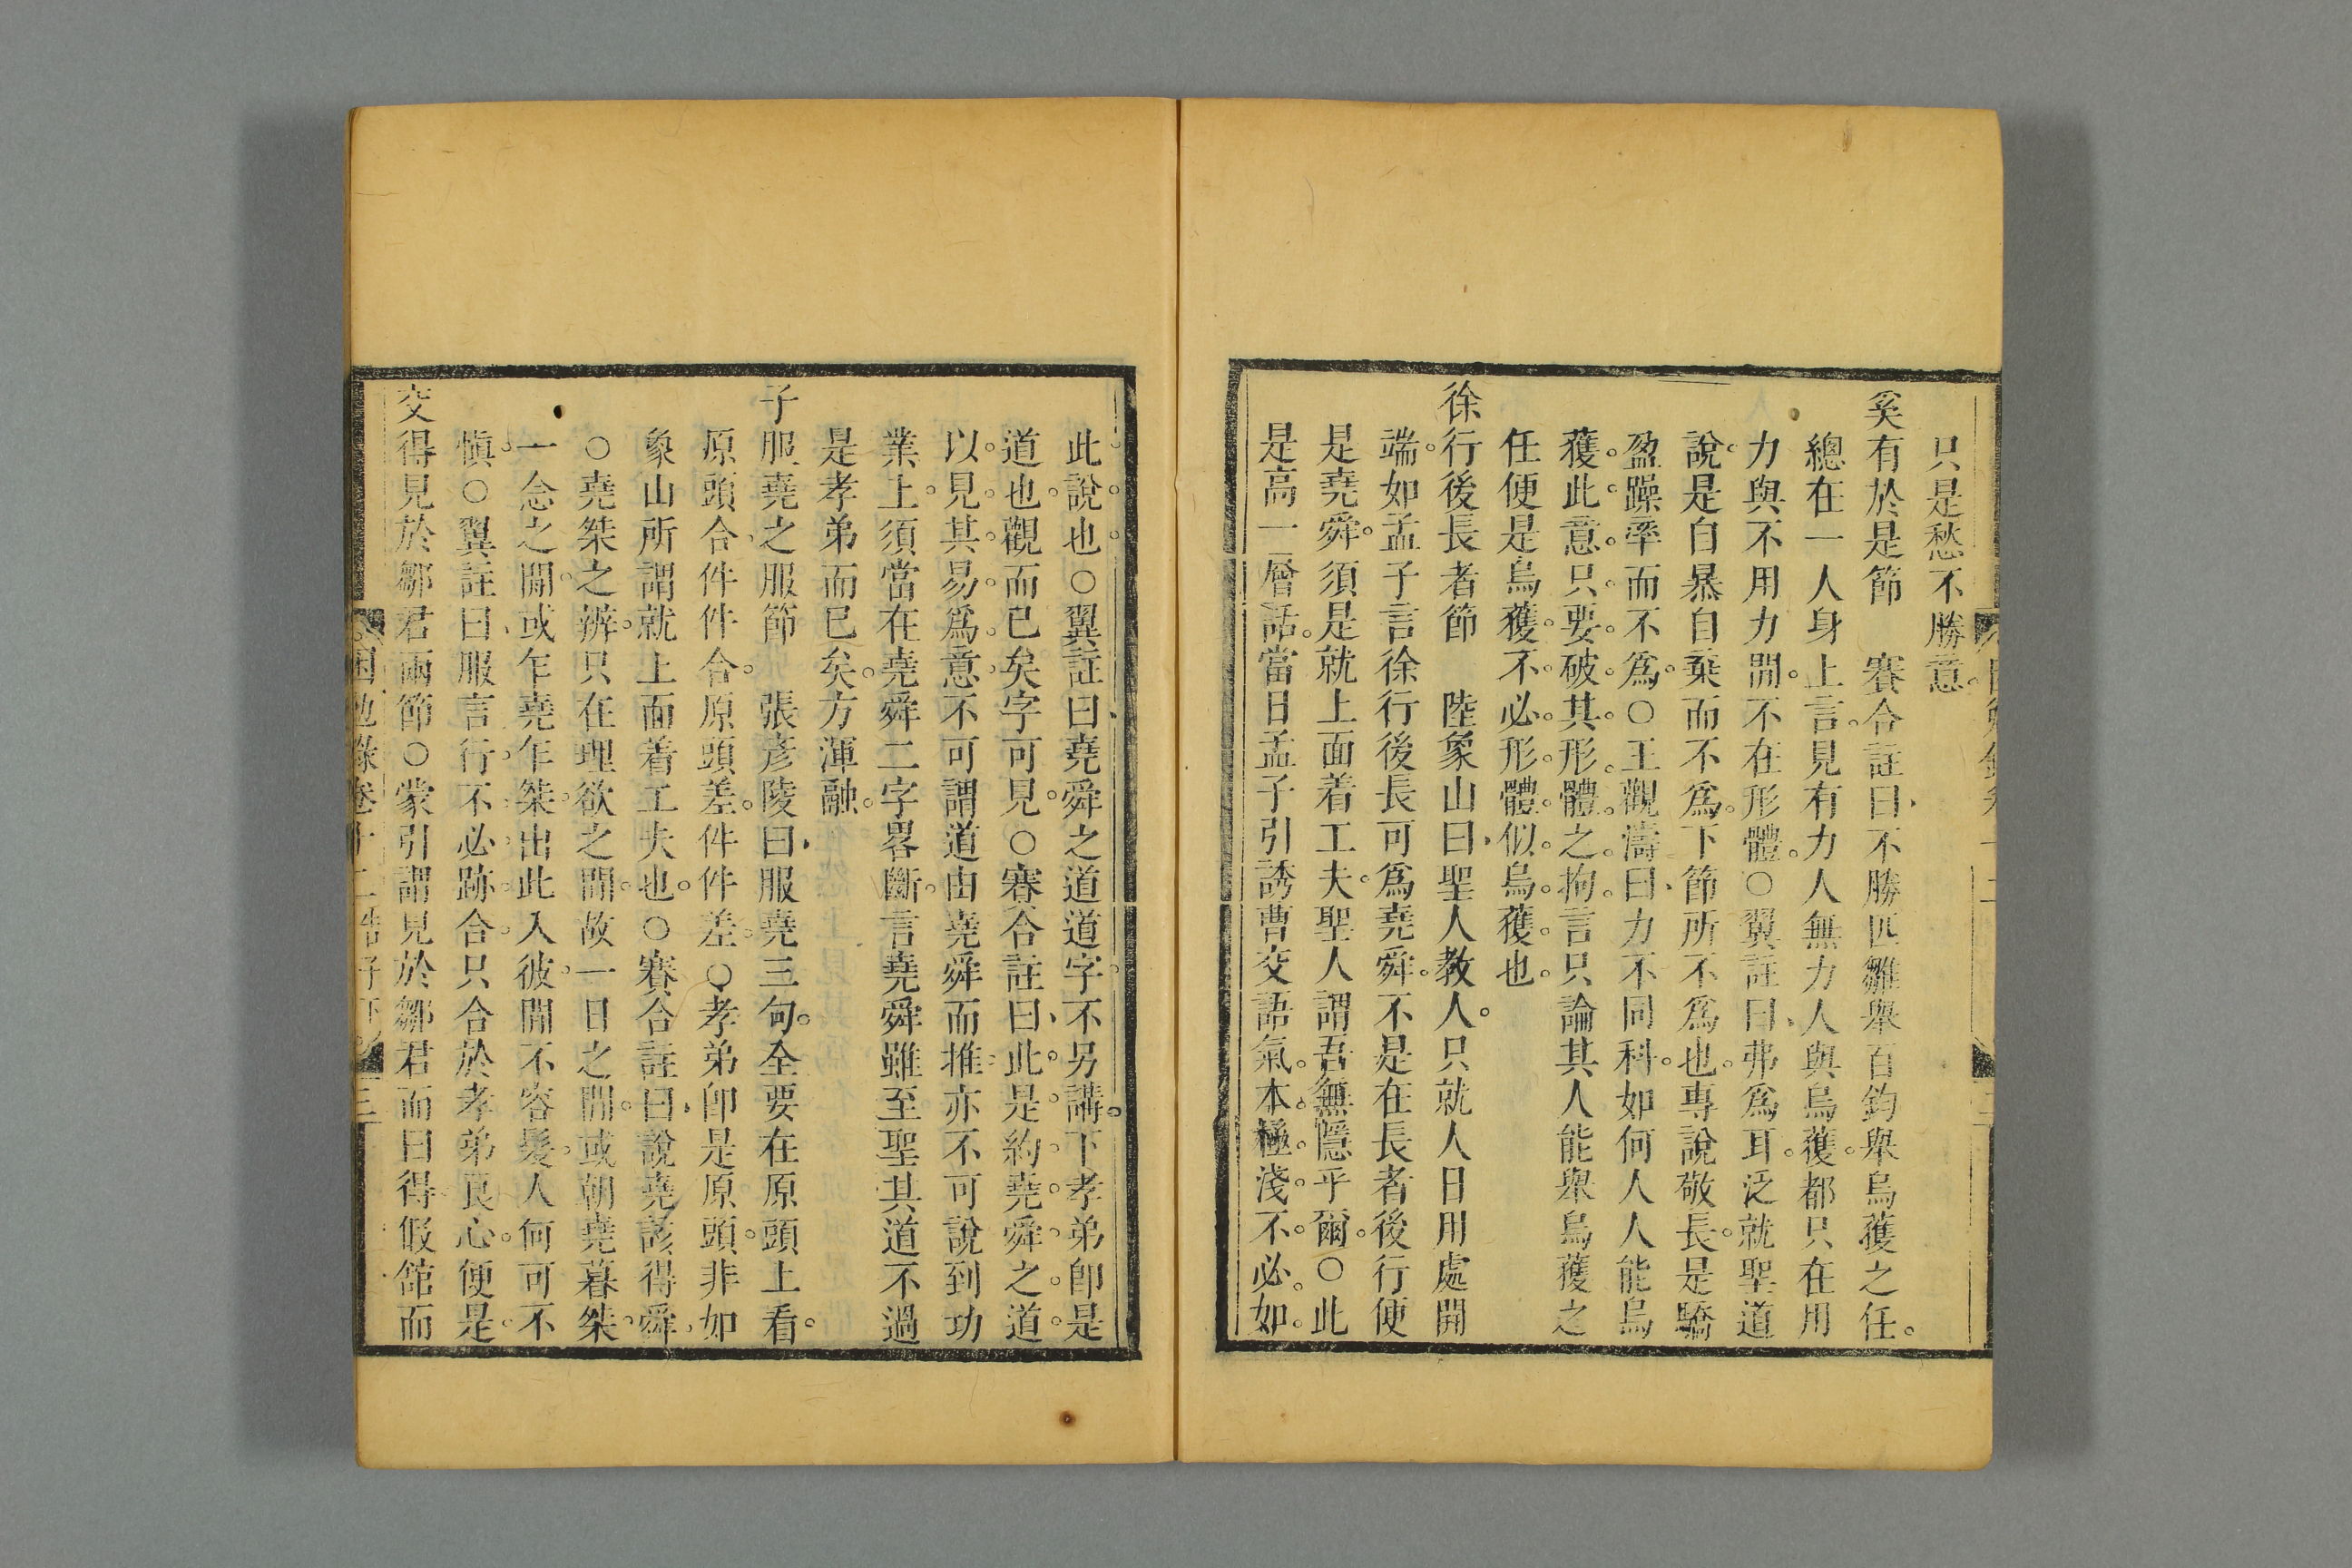 只是愁不勝意。
奚有於是節　賽合註曰、不勝匹雛舉百鈞舉烏獲之任。
總在一人身上言。見有力人無力人與烏獲。都只在用
力與不用力間。不在形體。○翼註曰、弗爲耳。泛就聖道
說。是自暴自棄而不爲。下節所不爲也。專說敬長。是驕
盈躁率而不爲。○王觀濤曰、力不同科。如何人人能烏
獲。此意。只要。破其。形體。之拘。言只論其人能舉烏獲之
任便是烏獲。不必。形。體。似。烏。獲。也。
徐行後長者節　陸象山曰、聖人教人。只就人日用處開
端。如孟子言徐行後長可爲堯舜。不是在長者後行便
是堯舜。須是就上面着工夫。聖人謂吾無隱乎爾。○此
是高一層話。當日孟子引誘曹交語氣。本。極。淺。不。必。如。
此。說。也。○翼註曰、堯舜之道道字。不另講。下孝弟即是
道也。觀而已矣字可見。○賽合註曰、此。是。約。堯。舜。之。道。
以。見。其。易。爲。意。不可謂道由堯舜而推。亦不可說到功
業上。須當在堯舜二字畧斷。言堯舜雖至聖其道不過
是孝弟而已矣。方渾融。
子服堯之服節　張彥陵曰、服堯三句。全要在原頭上看。
原頭合、件件合。原頭差。件件差。○孝弟即是原頭。非如
象山所謂就上面着工夫也。○賽合註曰、說堯該得舜、
○堯桀之辨。只在理欲之間。故一日之間。或朝堯暮桀。
一念之間。或乍堯乍桀。出此入彼。間不容髮。人何可不
愼。○翼註曰、服言行。不必。跡。合。只合於孝弟良心。便是。
交得見於鄒君兩節○蒙引謂見於鄒君而曰得假館而
困勉錄卷十二　三